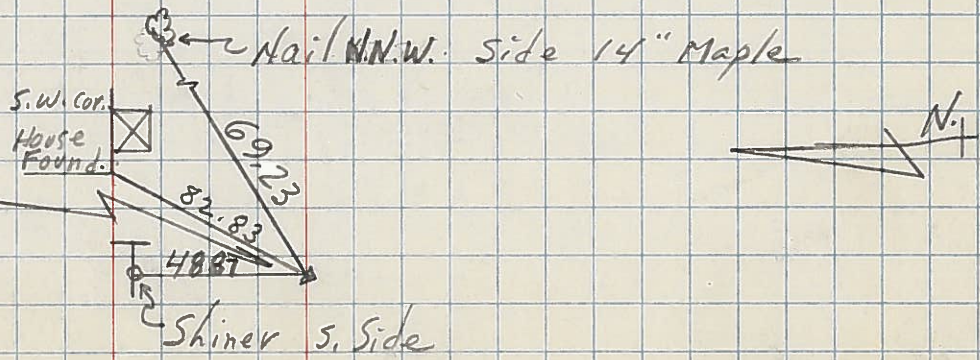 Nail N.N.W. Side 14" Maple
S.W. Cor.
House
Found.
N.
69.23
82.83
48.87
Shiner S. Side